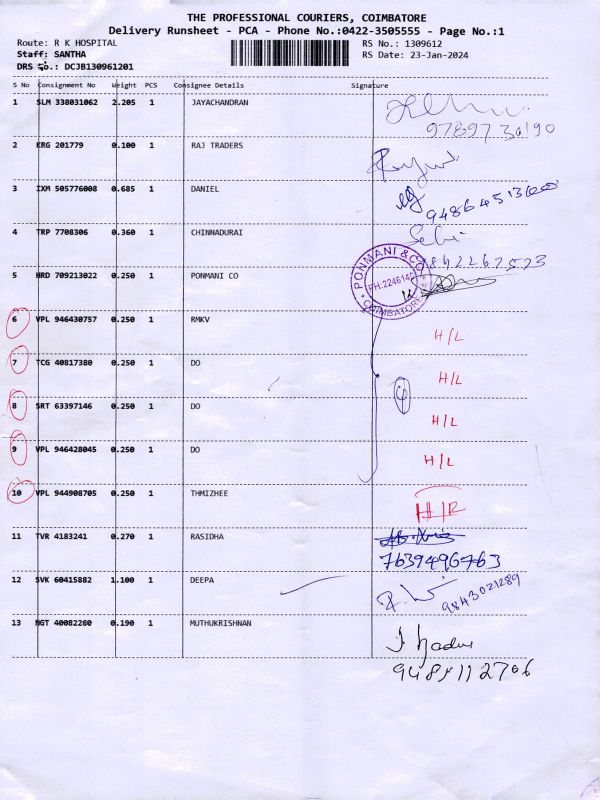 THE PROFESSIONAL COURIERS, COIMBATORE
Delivery Runsheet - PCA - Phone No.:0422-3505555 - Page No.:1
Route: R K HOSPITAL
RS No.: 1309612
Staff: SANTHA
RS Date: 23-Jan-2024
DRS No.: DCJB130961201
S No Consignment No Weight PCS Consignee Details Signature
1 SLM 338031062 2.205 1 JAYACHANDRAN
2 KRG 201779 0.100 1 RAJ TRADERS
3 IXM 505776008 0.685 1 DANIEL
4 TRP 7708306 0.360 1 CHINNADURAI
PONMANI & CO
PH:2246140
COIMBATORE
5 HRD 709213022 0.250 1 PONMANI CO
6 VPL 946430757 0.250 1 RMKV
H/L
7 TCG 40817380 0.250 1 DO
H/L
8 SRT 63397146 0.250 1 DO
H/L
9 VPL 946428045 0.250 1 DO
H/L
10 VPL 944908705 0.250 1 THMIZHEE
H/R
11 TVR 4183241 0.270 1 RASIDHA
7639496763
12 SVK 60415882 1.100 1 DEEPA
9843021289
13 NGT 40082260 0.190 1 MUTHUKRISHNAN